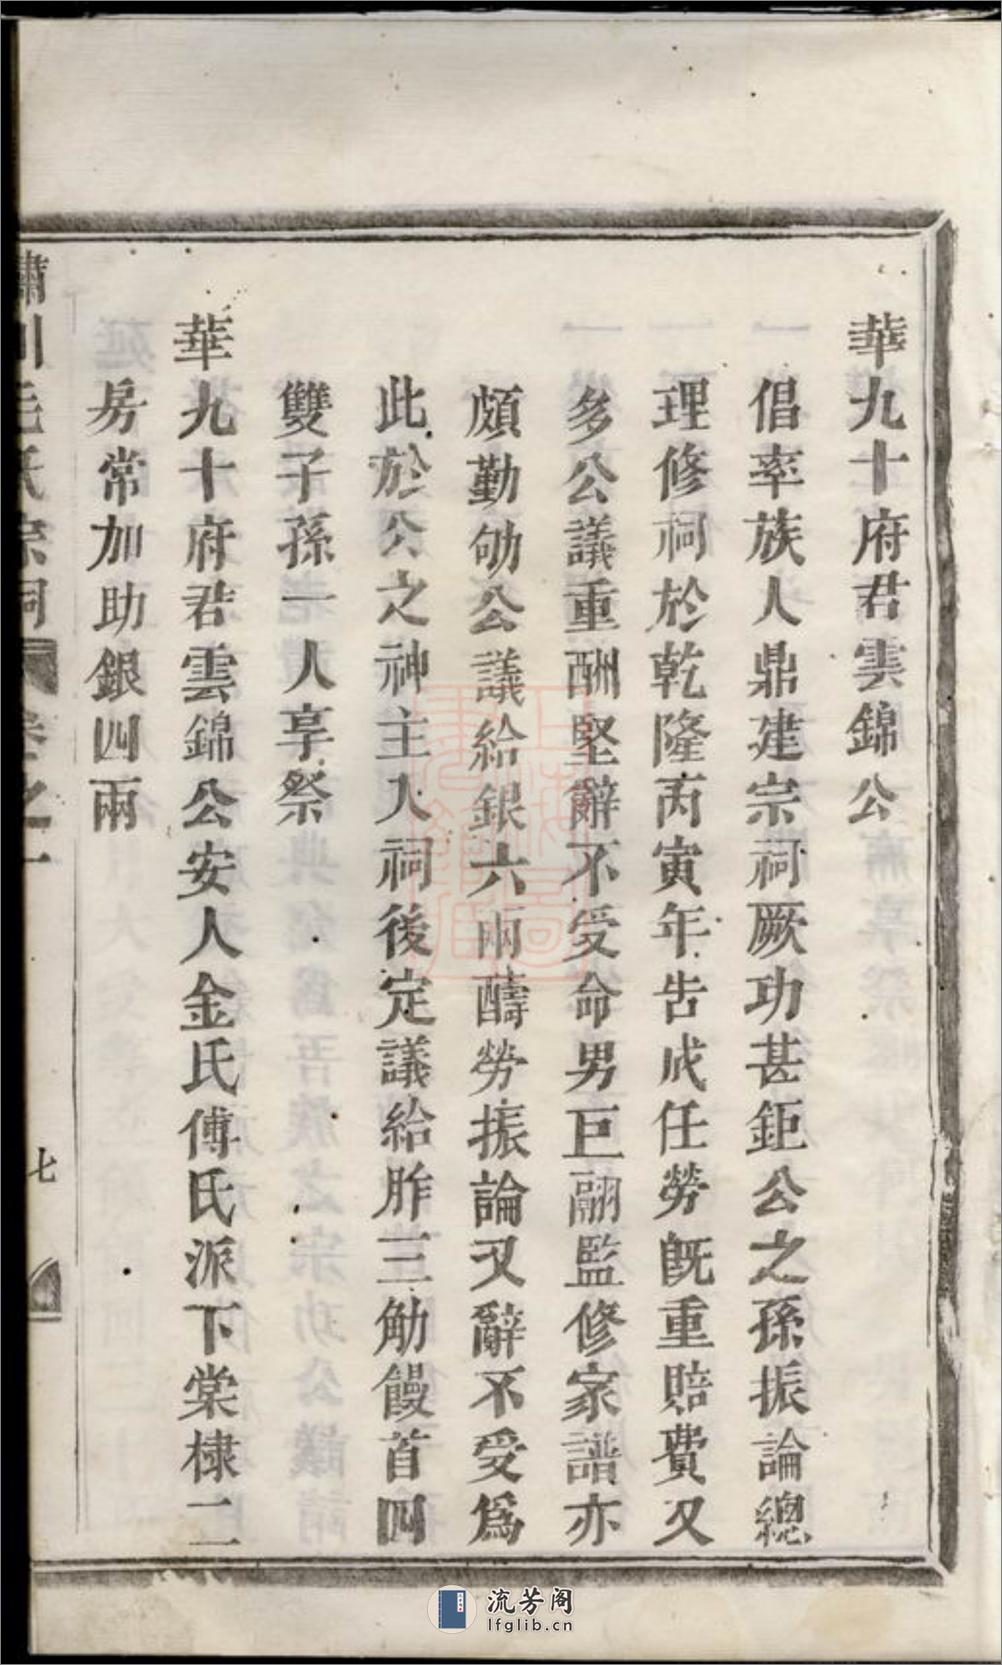 華九十府君雲錦公
倡率族人鼎建宗祠厥功甚鉅公之孫振論總
理修祠於乾隆丙寅年告成任勞既重賠費又
多公議重酬堅辭不受命男巨翮監修家譜亦
頗勤劬公議給銀六兩醻勞振論又辭不受爲
此於公之神主入祠後定議給胙三觔饅首四
雙子孫一人享祭
華九十府君雲錦公安人金氏傅氏派下棠棣二
房常加助銀四兩
川毛氏宗祠 卷之一 七
流芳阁
lfglib.cn